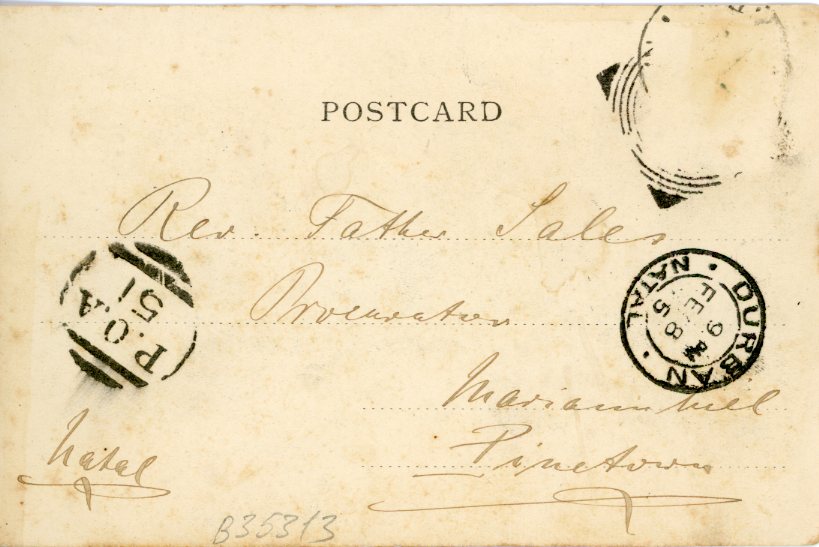 POSTCARD
Rev. Father Sales
Procurator
Mariannhill
Pinetown
Natal
P.O.A
51
DURBAN · NATAL ·
9 AM
FE 8
5
B35313